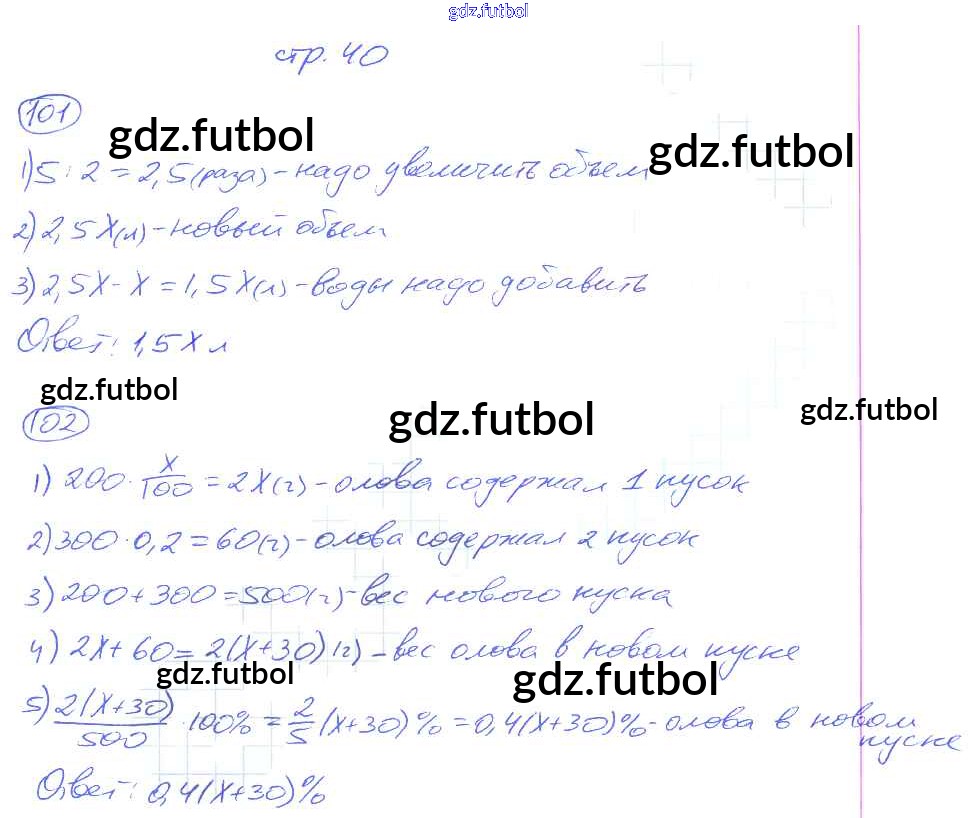 gdz.futbol
стр. 40
101
gdz.futbol
gdz.futbol
1) 5 : 2 = 2,5 (раза) - надо увеличить объем
2) 2,5х(л) - новый объем
3) 2,5х - х = 1,5х(л) - воды надо добавить
Ответ: 1,5х л
gdz.futbol
102
gdz.futbol
gdz.futbol
1) 200 · х/100 = 2х(г) - олова содержал 1 кусок
2) 300 · 0,2 = 60(г) - олова содержал 2 кусок
3) 200 + 300 = 500(г) - вес нового куска
4) 2х + 60 = 2(х+30) (г) - вес олова в новом куске
gdz.futbol
gdz.futbol
5) 2(х+30)/500 · 100% = 2/5 (х+30)% = 0,4(х+30)% - олова в новом
куске
Ответ: 0,4(х+30)%